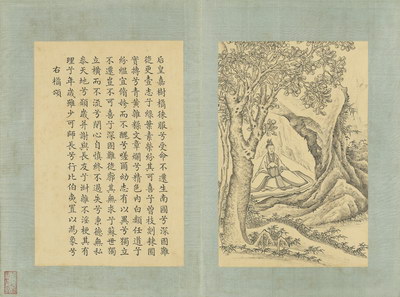 后皇嘉樹橘徠服兮受命不遷生南國兮深固難
徙更壹志兮綠葉素榮紛其可喜兮曾枝剡棘圓
實摶兮青黃雜糅文章爛兮精色內白類任道兮
紛縕宜脩姱而不醜兮嗟爾幼志有以異兮獨立
不遷豈不可喜兮深固難徙廓其無求兮蘇世獨
立橫而不流兮閉心自慎終不過失兮秉德無私
參天地兮願歲并謝與長友兮淑離不淫梗其有
理兮年歲雖少可師長兮行比伯夷置以為象兮
右橘頌